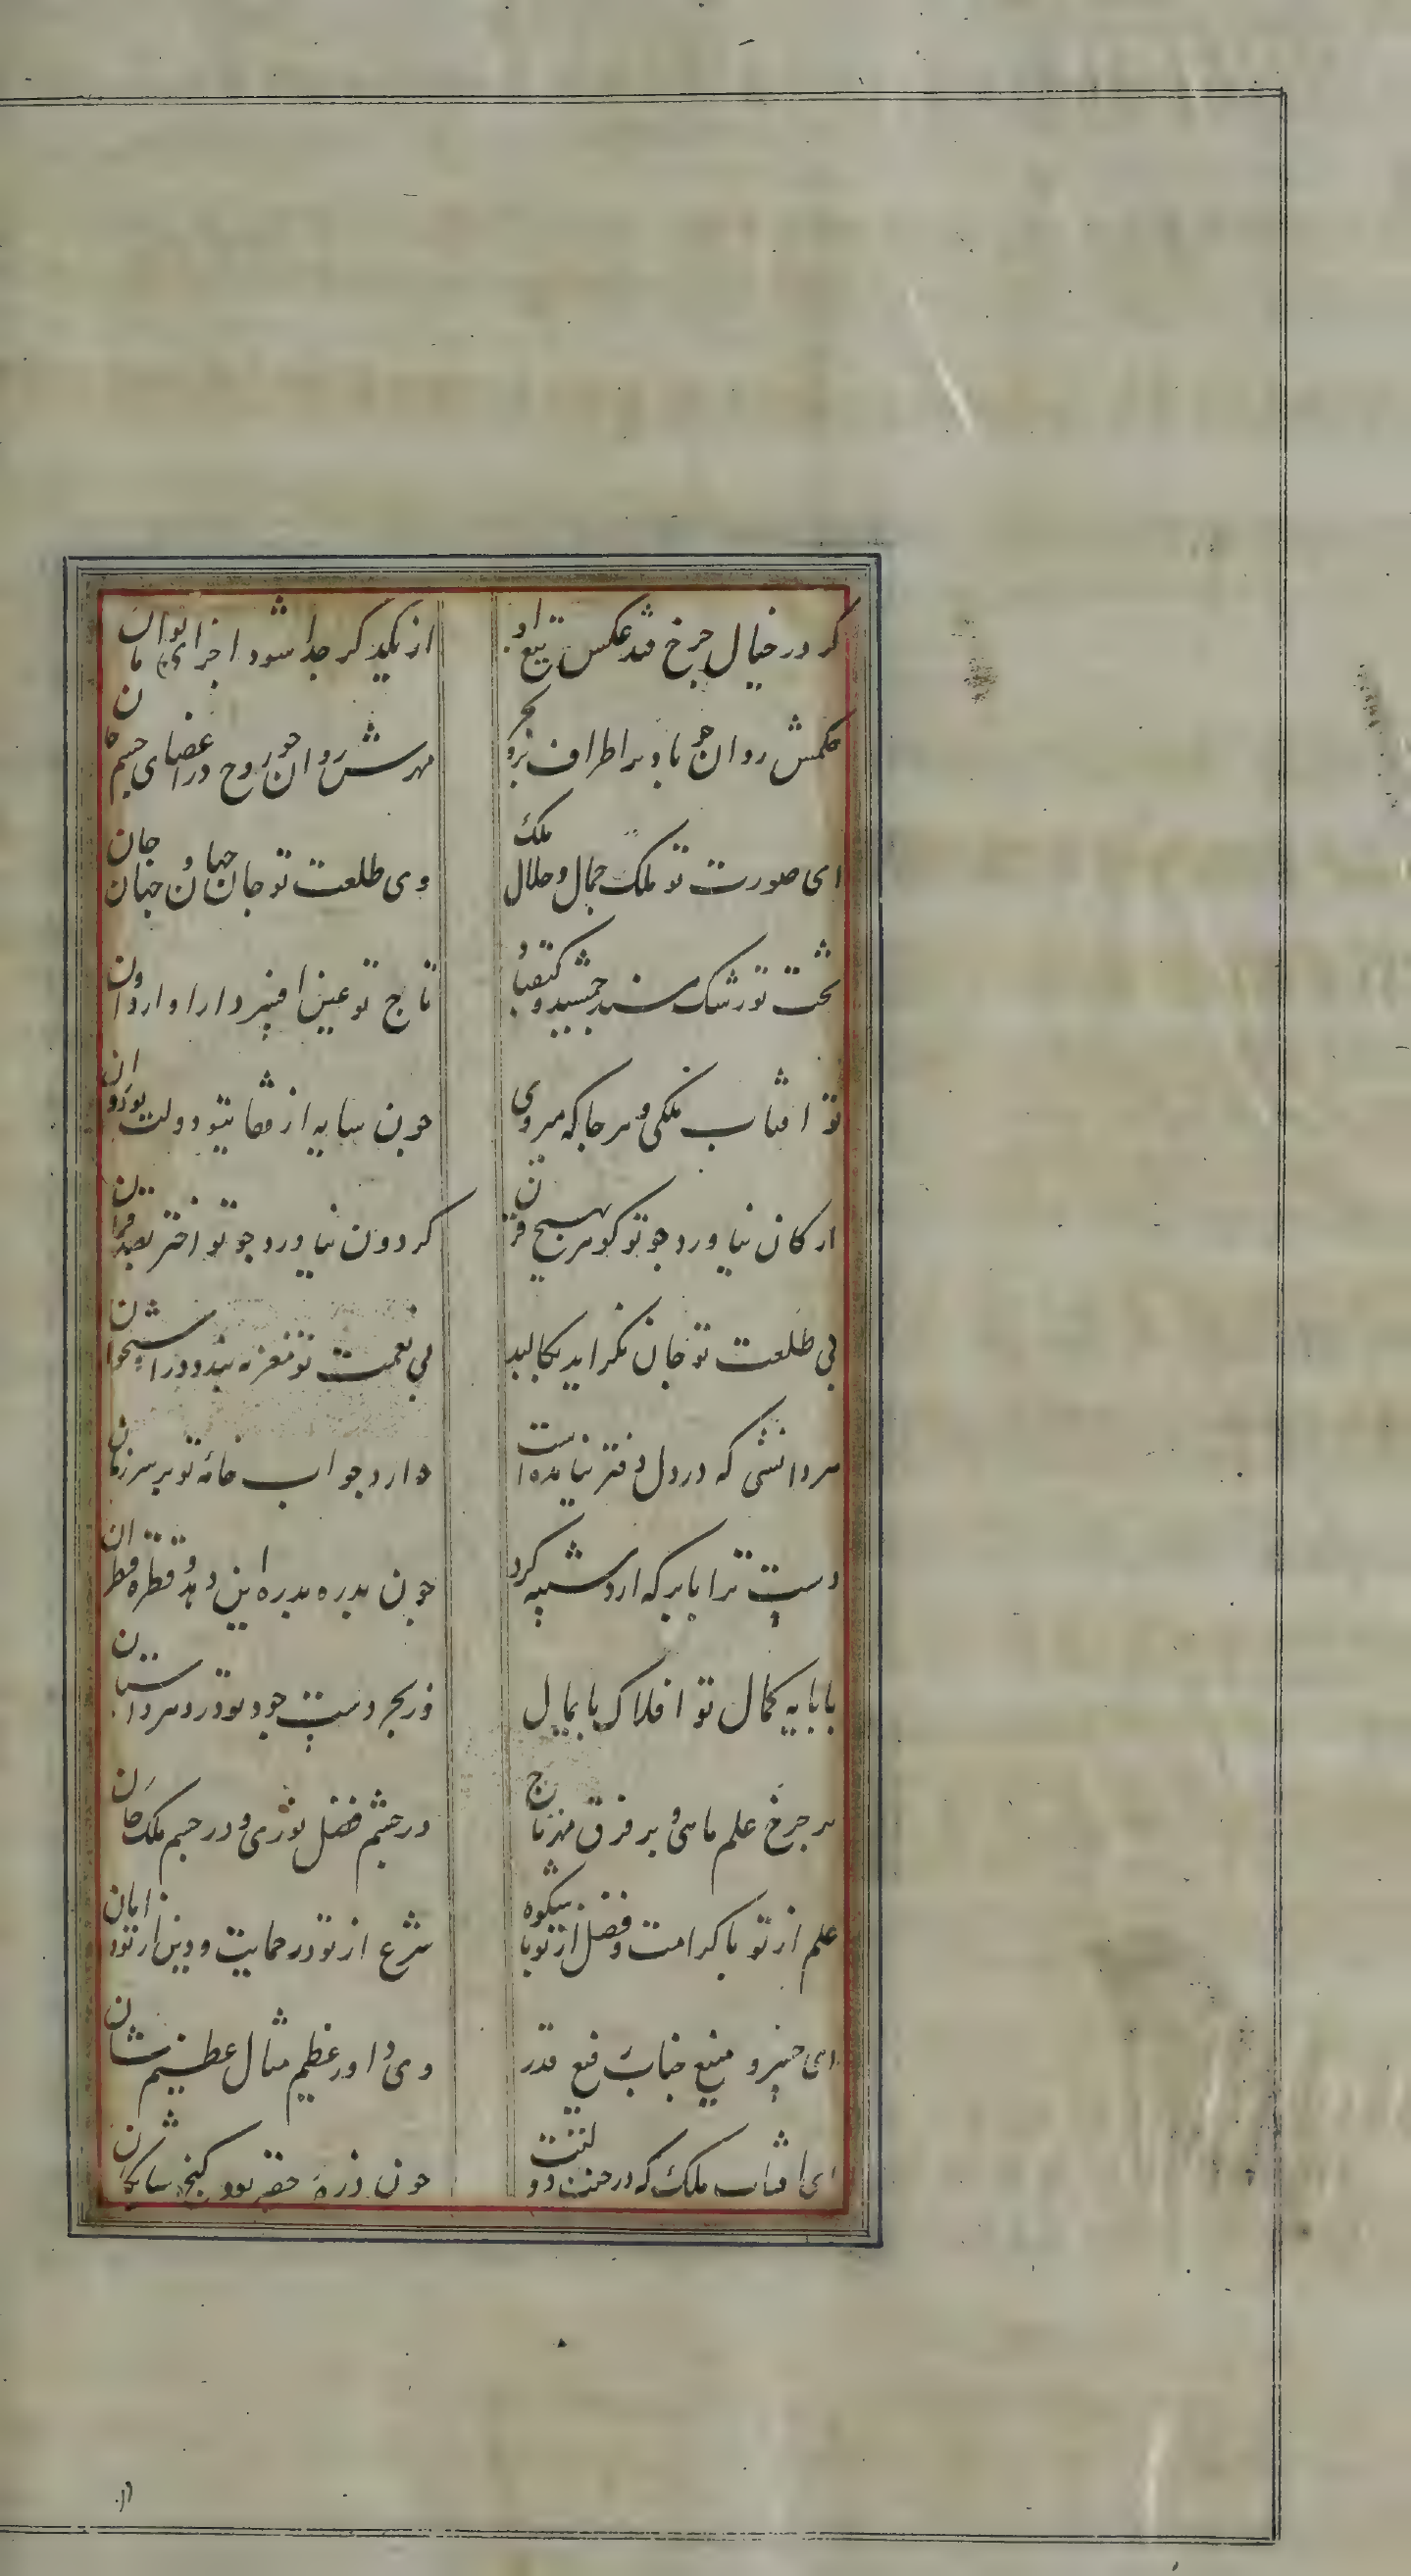 گر در خیال چرخ فتد عکس تیغ او
از یکدیگر جدا شود اجزای توامان
حکمش روان چو باد بر اطراف بحر و بر
مهرش روان چو روح در اعضای جسم جان
ای صورت تو ملک جمال و جلال ملک
وی طلعت تو جان جهان و جهان جان
تخت تو رشک مسند جمشید و کیقباد
تاج تو عین افسر دارا و اردوان
تو افتاب ملکی و هر جا که میروی
چون سایه از قفا بتو دولت بود دوان
ارکان نیاورد چو تو گوهر بهیچ قرن
گردون نیاورد چو تو اختر بصد قران
بی طلعت تو جان نگراید بکالبد
بی نعمت تو مغز نبندد در استخوان
هر دانشی که در دل دفتر نیامده است
دارد جواب خامه تو بر سر زبان
دست ترا بابر که یارد شبیه کرد
چون بدره بدره این دهد و قطره قطره ان
با پایه کمال تو افلاک پایمال
وز بحر دست جود تو در دهر داستان
بر چرخ علم ماهی و بر فرق مهر تاج
در چشم فضل نوری و در جسم ملک جان
علم از تو با کرامت و فضل از تو با شکوه
شرع از تو در حمایت و دین از تو در امان
ای خسرو منیع جناب رفیع قدر
وی داور عظیم مثال عظیم شان
ای افتاب ملک که در جنب دولتت
چون ذره حقیر بود گنج شایگان